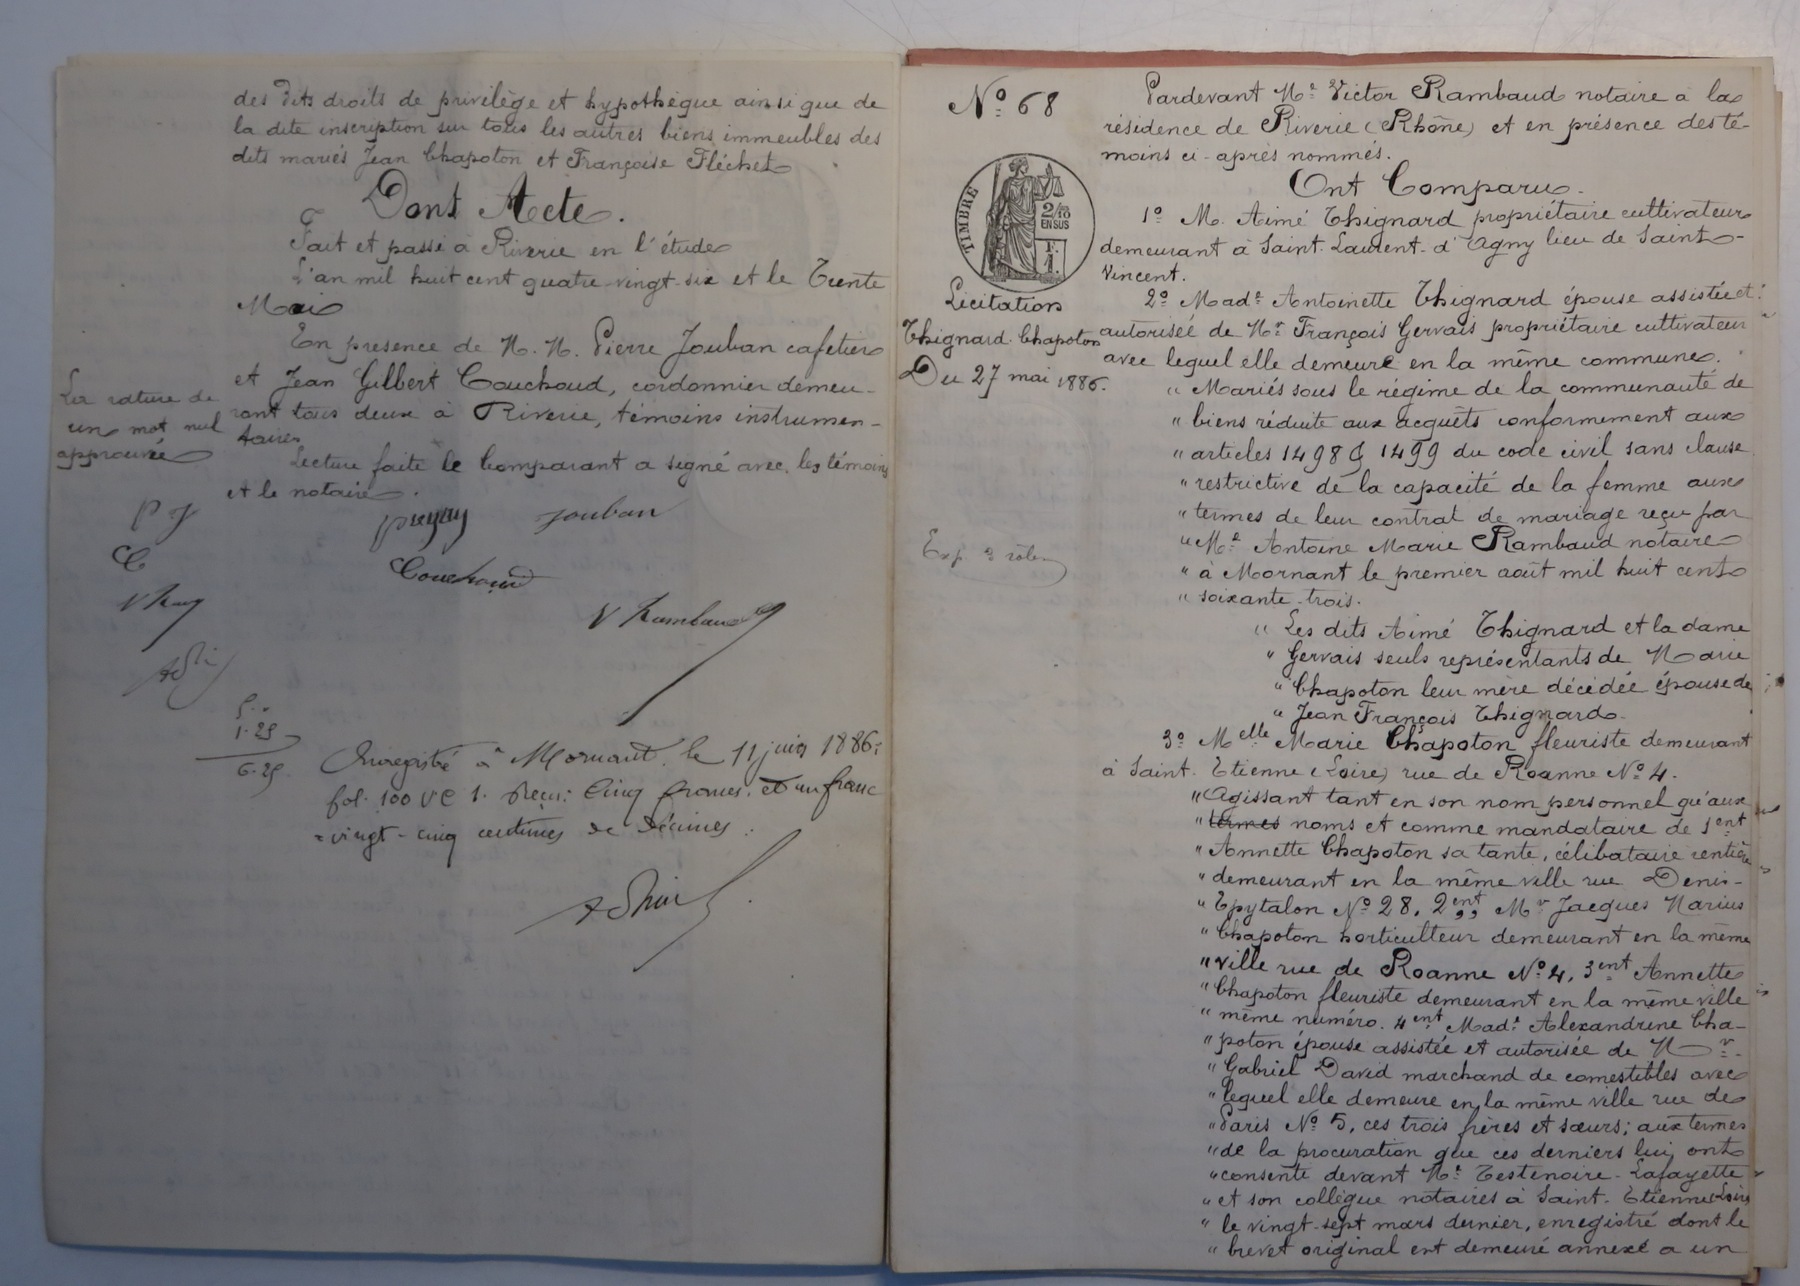 des dits droits de privilège et hypothèque ainsi que de
la dite inscription sur tous les autres biens immeubles des
dits mariés Jean Chapoton et Françoise Fléchet
Dont Acte.
Fait et passé à Riverie en l'étude
L'an mil huit cent quatre-vingt-six et le Trente
Mai
En présence de M. M. Pierre Jouban cafetier
et Jean Gilbert Couchoud, cordonnier demeu-
rant tous deux à Riverie, témoins instrumen-
taires
Lecture faite le Comparant a signé avec les témoins
et le notaire.
La rature de
un mot nul
approuvée
P J
C
Jouban
Couchoud
V Rambaud
1.25
6.25
Enregistré à Mornant, le 11 juin 1886;
fol. 100 V C 1. Reçu: Cinq francs, et un franc
vingt-cinq centimes de décimes.
No 68
TIMBRE
2/10
EN SUS
F.
1.
Licitation
Thignard. Chapoton
Du 27 mai 1886.
Exp rôles
Pardevant Me Victor Rambaud notaire à la
résidence de Riverie (Rhône) et en présence des té-
moins ci-après nommés.
Ont Comparu.
1o M. Aimé Thignard propriétaire cultivateur
demeurant à Saint-Laurent-d'Agny lieu de Saint-
Vincent.
2o Made Antoinette Thignard épouse assistée et
autorisée de Mr François Gervais propriétaire cultivateur
avec lequel elle demeure en la même commune.
" Mariés sous le régime de la communauté de
" biens réduite aux acquêts conformement aux
" articles 1498 & 1499 du code civil sans clause
" restrictive de la capacité de la femme aux
" termes de leur contrat de mariage reçu par
" Me Antoine Marie Rambaud notaire
" à Mornant le premier août mil huit cent
" soixante-trois.
" Les dits Aimé Thignard et la dame
" Gervais seuls représentants de Marie
" Chapoton leur mère décédée épouse de
" Jean François Thignard.
3o Melle Marie Chapoton fleuriste demeurant
à Saint-Etienne (Loire) rue de Roanne No 4.
" Agissant tant en son nom personnel qu'aux
" termes noms et comme mandataire de 1ent
" Annette Chapoton sa tante, célibataire rentière
" demeurant en la même ville rue Denis-
" Epytalon No 28, 2ent Mr Jacques Marius
" Chapoton horticulteur demeurant en la même
" ville rue de Roanne No 4, 3ent Annette
" Chapoton fleuriste demeurant en la même ville
" même numéro. 4ent Made Alexandrine Cha-
" poton épouse assistée et autorisée de Mr
" Gabriel David marchand de comestibles avec
" lequel elle demeure en la même ville rue de
" Paris No 5, ces trois frères et sœurs; aux termes
" de la procuration que ces derniers lui ont
" consenti devant Me Testenoire-Lafayette
" et son collègue notaires à Saint-Etienne (Loire)
" le vingt-sept mars dernier, enregistré dont le
" brevet original est demeuré annexé a un